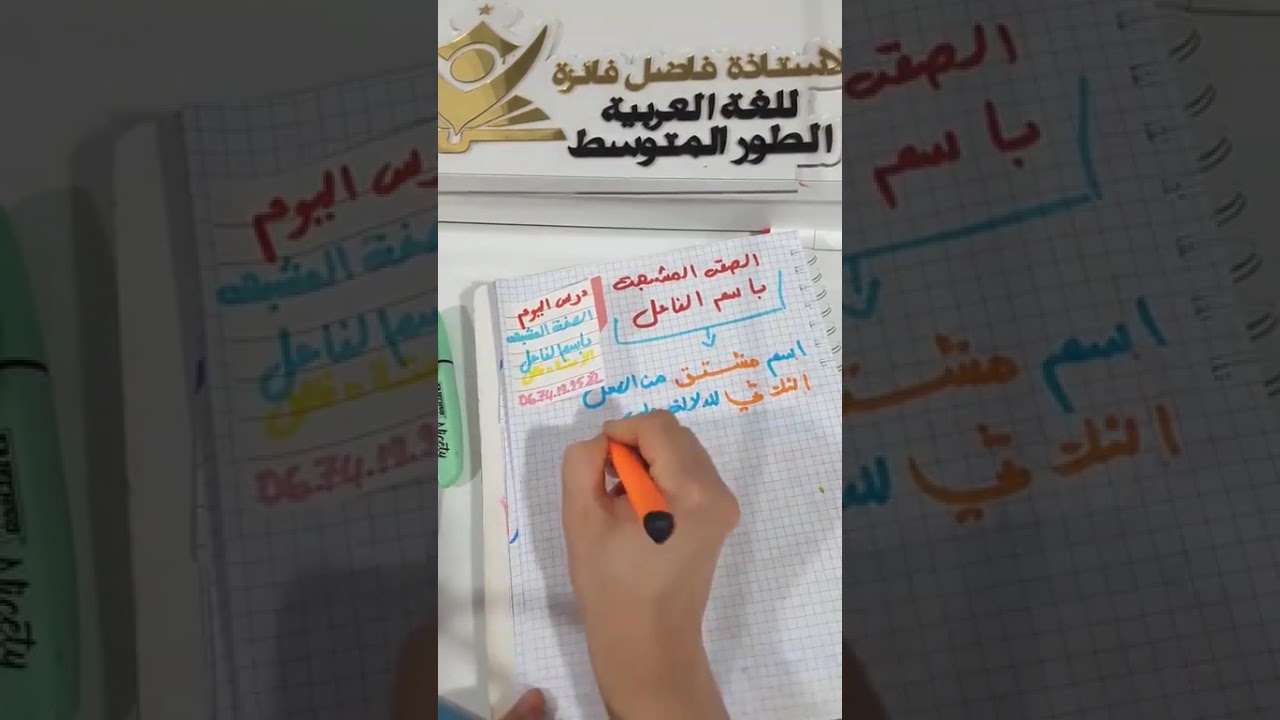 الاستاذة فاضل فائزة
للغة العربية
الطور المتوسط
الصفة المشبهة
باسم الفاعل
اسم مشتق من الفعل
الثلاثي للدلالة
درس اليوم
الصفة المشبهة
باسم الفاعل
06.74.12.95.22